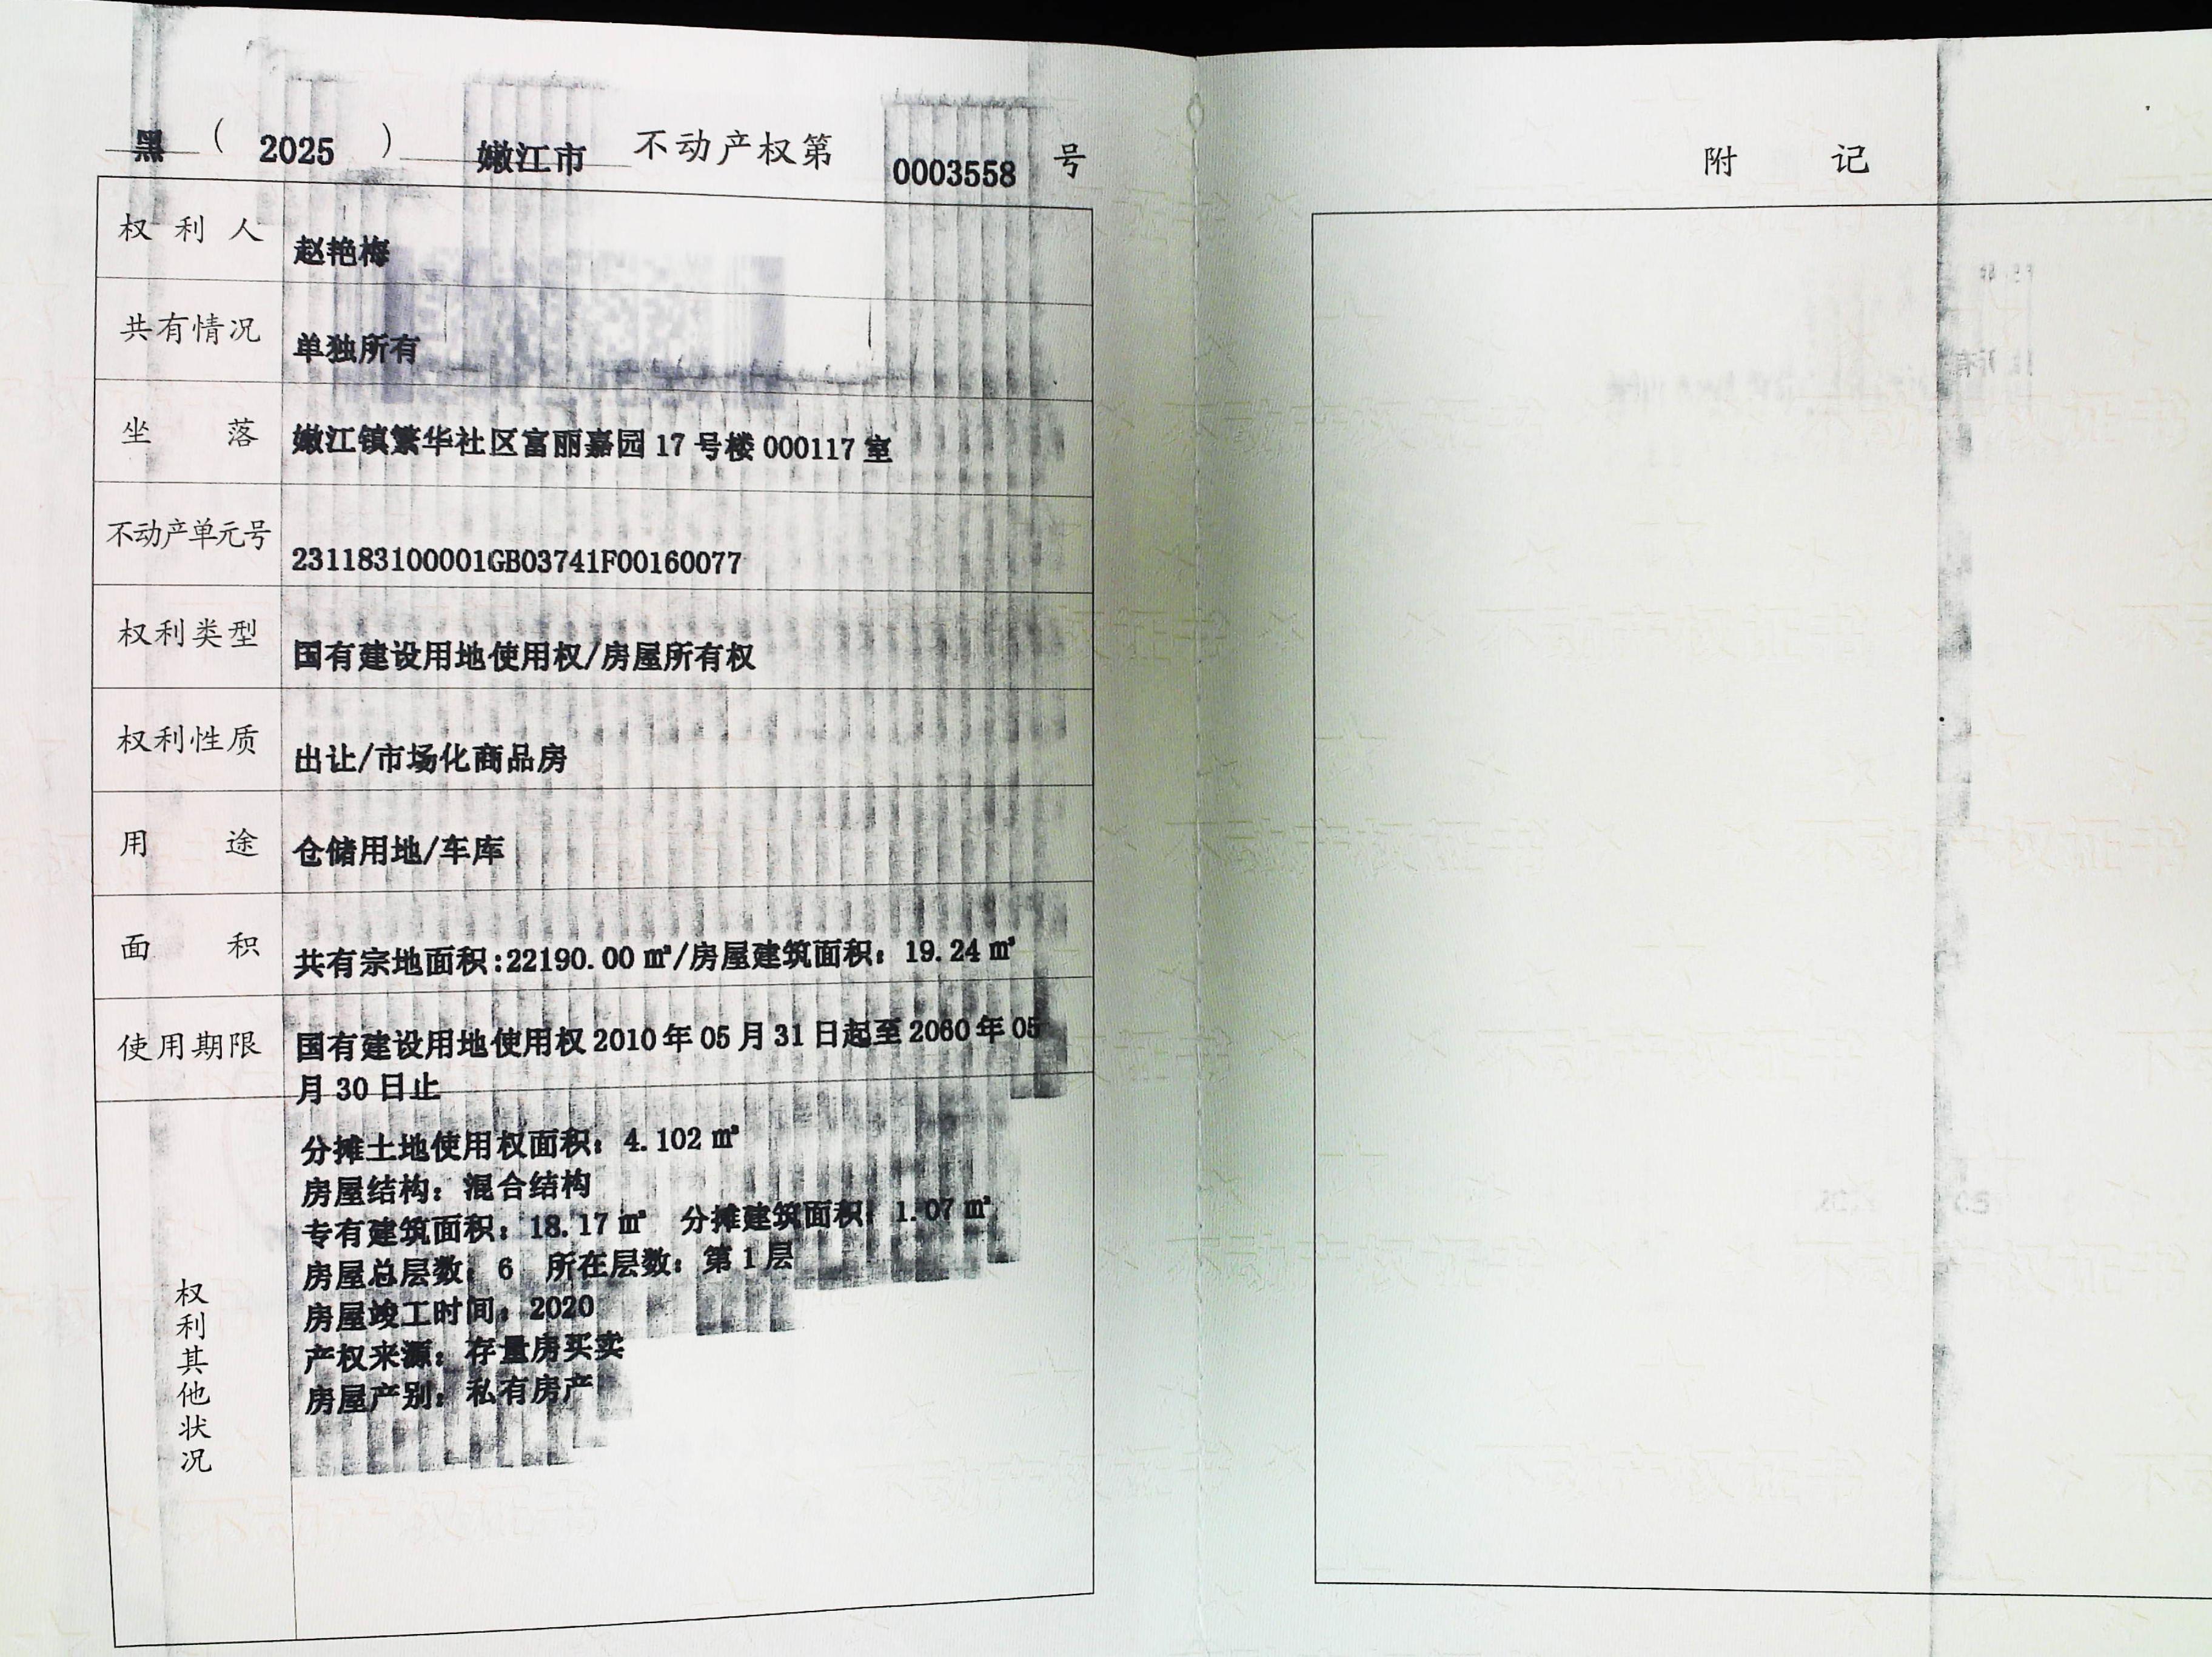 黑（2025）嫩江市不动产权第0003558号
权利人 赵艳梅
共有情况 单独所有
坐落 嫩江镇繁华社区富丽嘉园17号楼000117室
不动产单元号 231183100001GB03741F00160077
权利类型 国有建设用地使用权/房屋所有权
权利性质 出让/市场化商品房
用途 仓储用地/车库
面积 共有宗地面积:22190.00㎡/房屋建筑面积：19.24㎡
使用期限 国有建设用地使用权2010年05月31日起至2060年05
月30日止
权利其他状况
分摊土地使用权面积：4.102㎡
房屋结构：混合结构
专有建筑面积：18.17㎡ 分摊建筑面积：1.07㎡
房屋总层数：6 所在层数：第1层
房屋竣工时间：2020
产权来源：存量房买卖
房屋产别：私有房产
附记